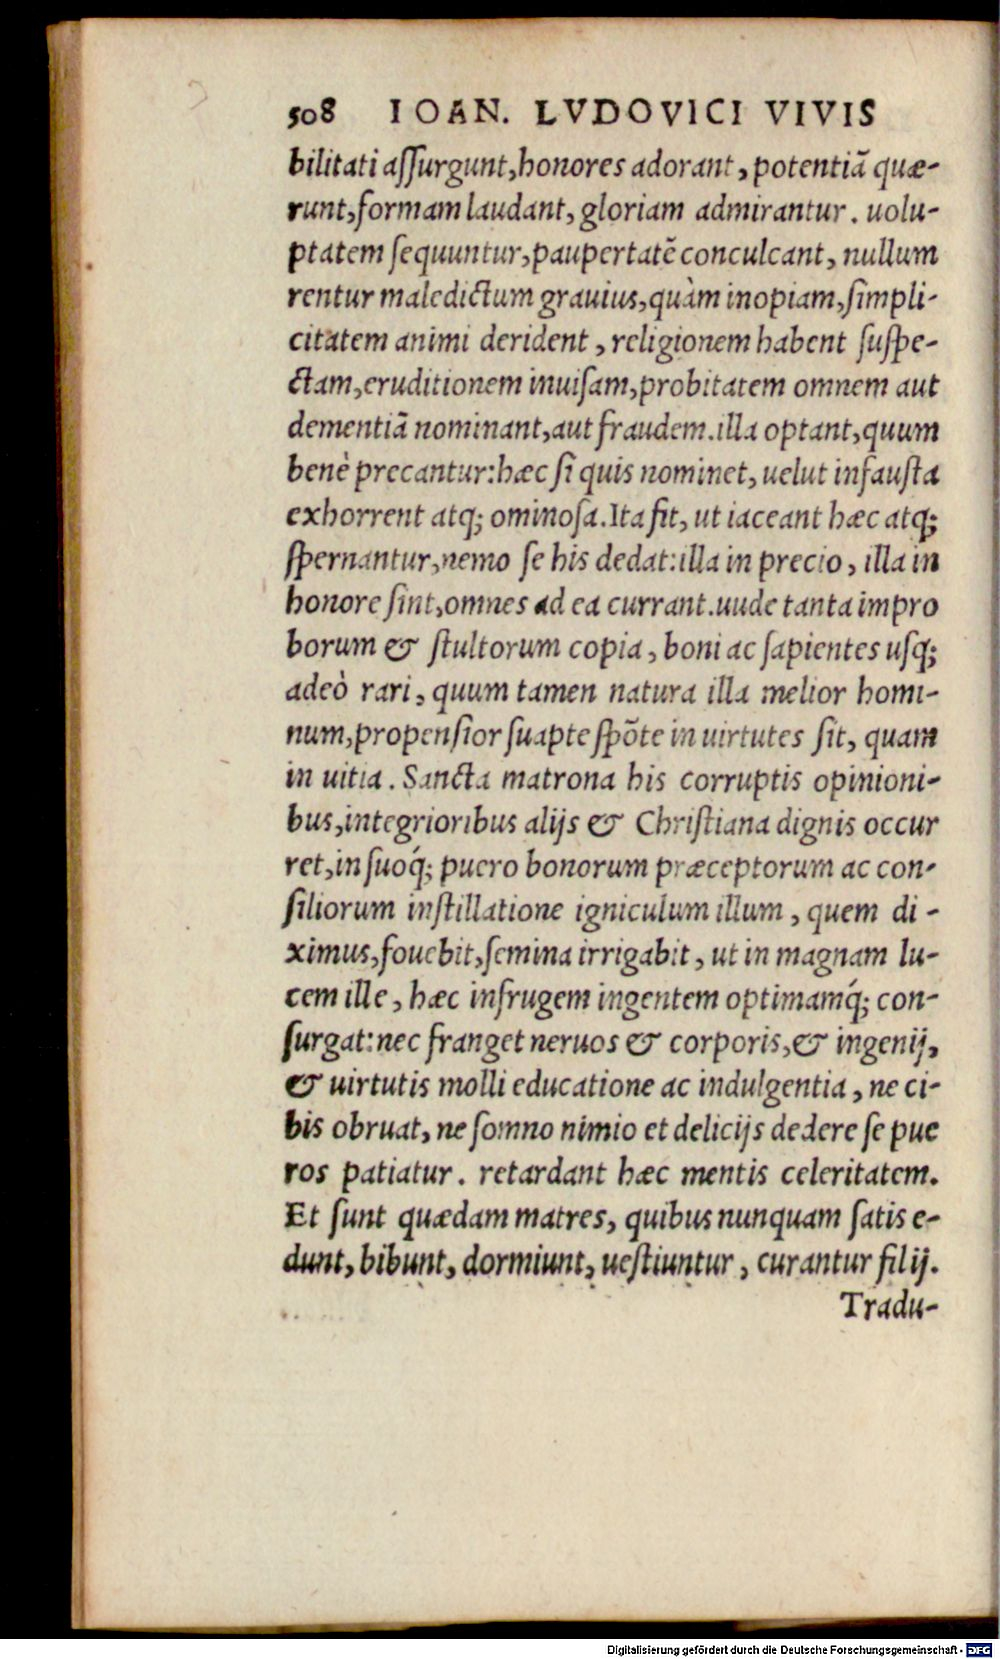 508 IOAN. LVDOVICI VIVIS
bilitati aſſurgunt, honores adorant, potentiã quæ-
runt, formam laudant, gloriam admirantur. uolu-
ptatem ſequuntur, paupertatẽ conculcant, nullum
rentur maledictum grauius, quàm inopiam, ſimpli-
citatem animi derident, religionem habent ſuſpe-
ctam, eruditionem inuiſam, probitatem omnem aut
dementiã nominant, aut fraudem. illa optant, quum
benè precantur: hæc ſi quis nominet, uelut infauſta
exhorrent atq; ominoſa. Ita fit, ut iaceant hæc atq;
ſpernantur, nemo ſe his dedat: illa in precio, illa in
honore ſint, omnes ad ea currant. uude tanta impro
borum & ſtultorum copia, boni ac ſapientes uſq;
adeò rari, quum tamen natura illa melior homi-
num, propenſior ſuapte ſpõte in uirtutes ſit, quam
in uitia. Sancta matrona his corruptis opinioni-
bus, integrioribus alijs & Chriſtiana dignis occur
ret, in ſuoq́; puero bonorum præceptorum ac con-
ſiliorum inſtillatione igniculum illum, quem di-
ximus, fouebit, ſemina irrigabit, ut in magnam lu-
cem ille, hæc in frugem ingentem optimamq́; con-
ſurgat: nec franget neruos & corporis, & ingenij,
& uirtutis molli educatione ac indulgentia, ne ci-
bis obruat, ne ſomno nimio et delicijs dedere ſe pue
ros patiatur. retardant hæc mentis celeritatem.
Et ſunt quædam matres, quibus nunquam ſatis e-
dunt, bibunt, dormiunt, ueſtiuntur, curantur filij.
Tradu-
Digitalisierung gefördert durch die Deutsche Forschungsgemeinschaft - DFG